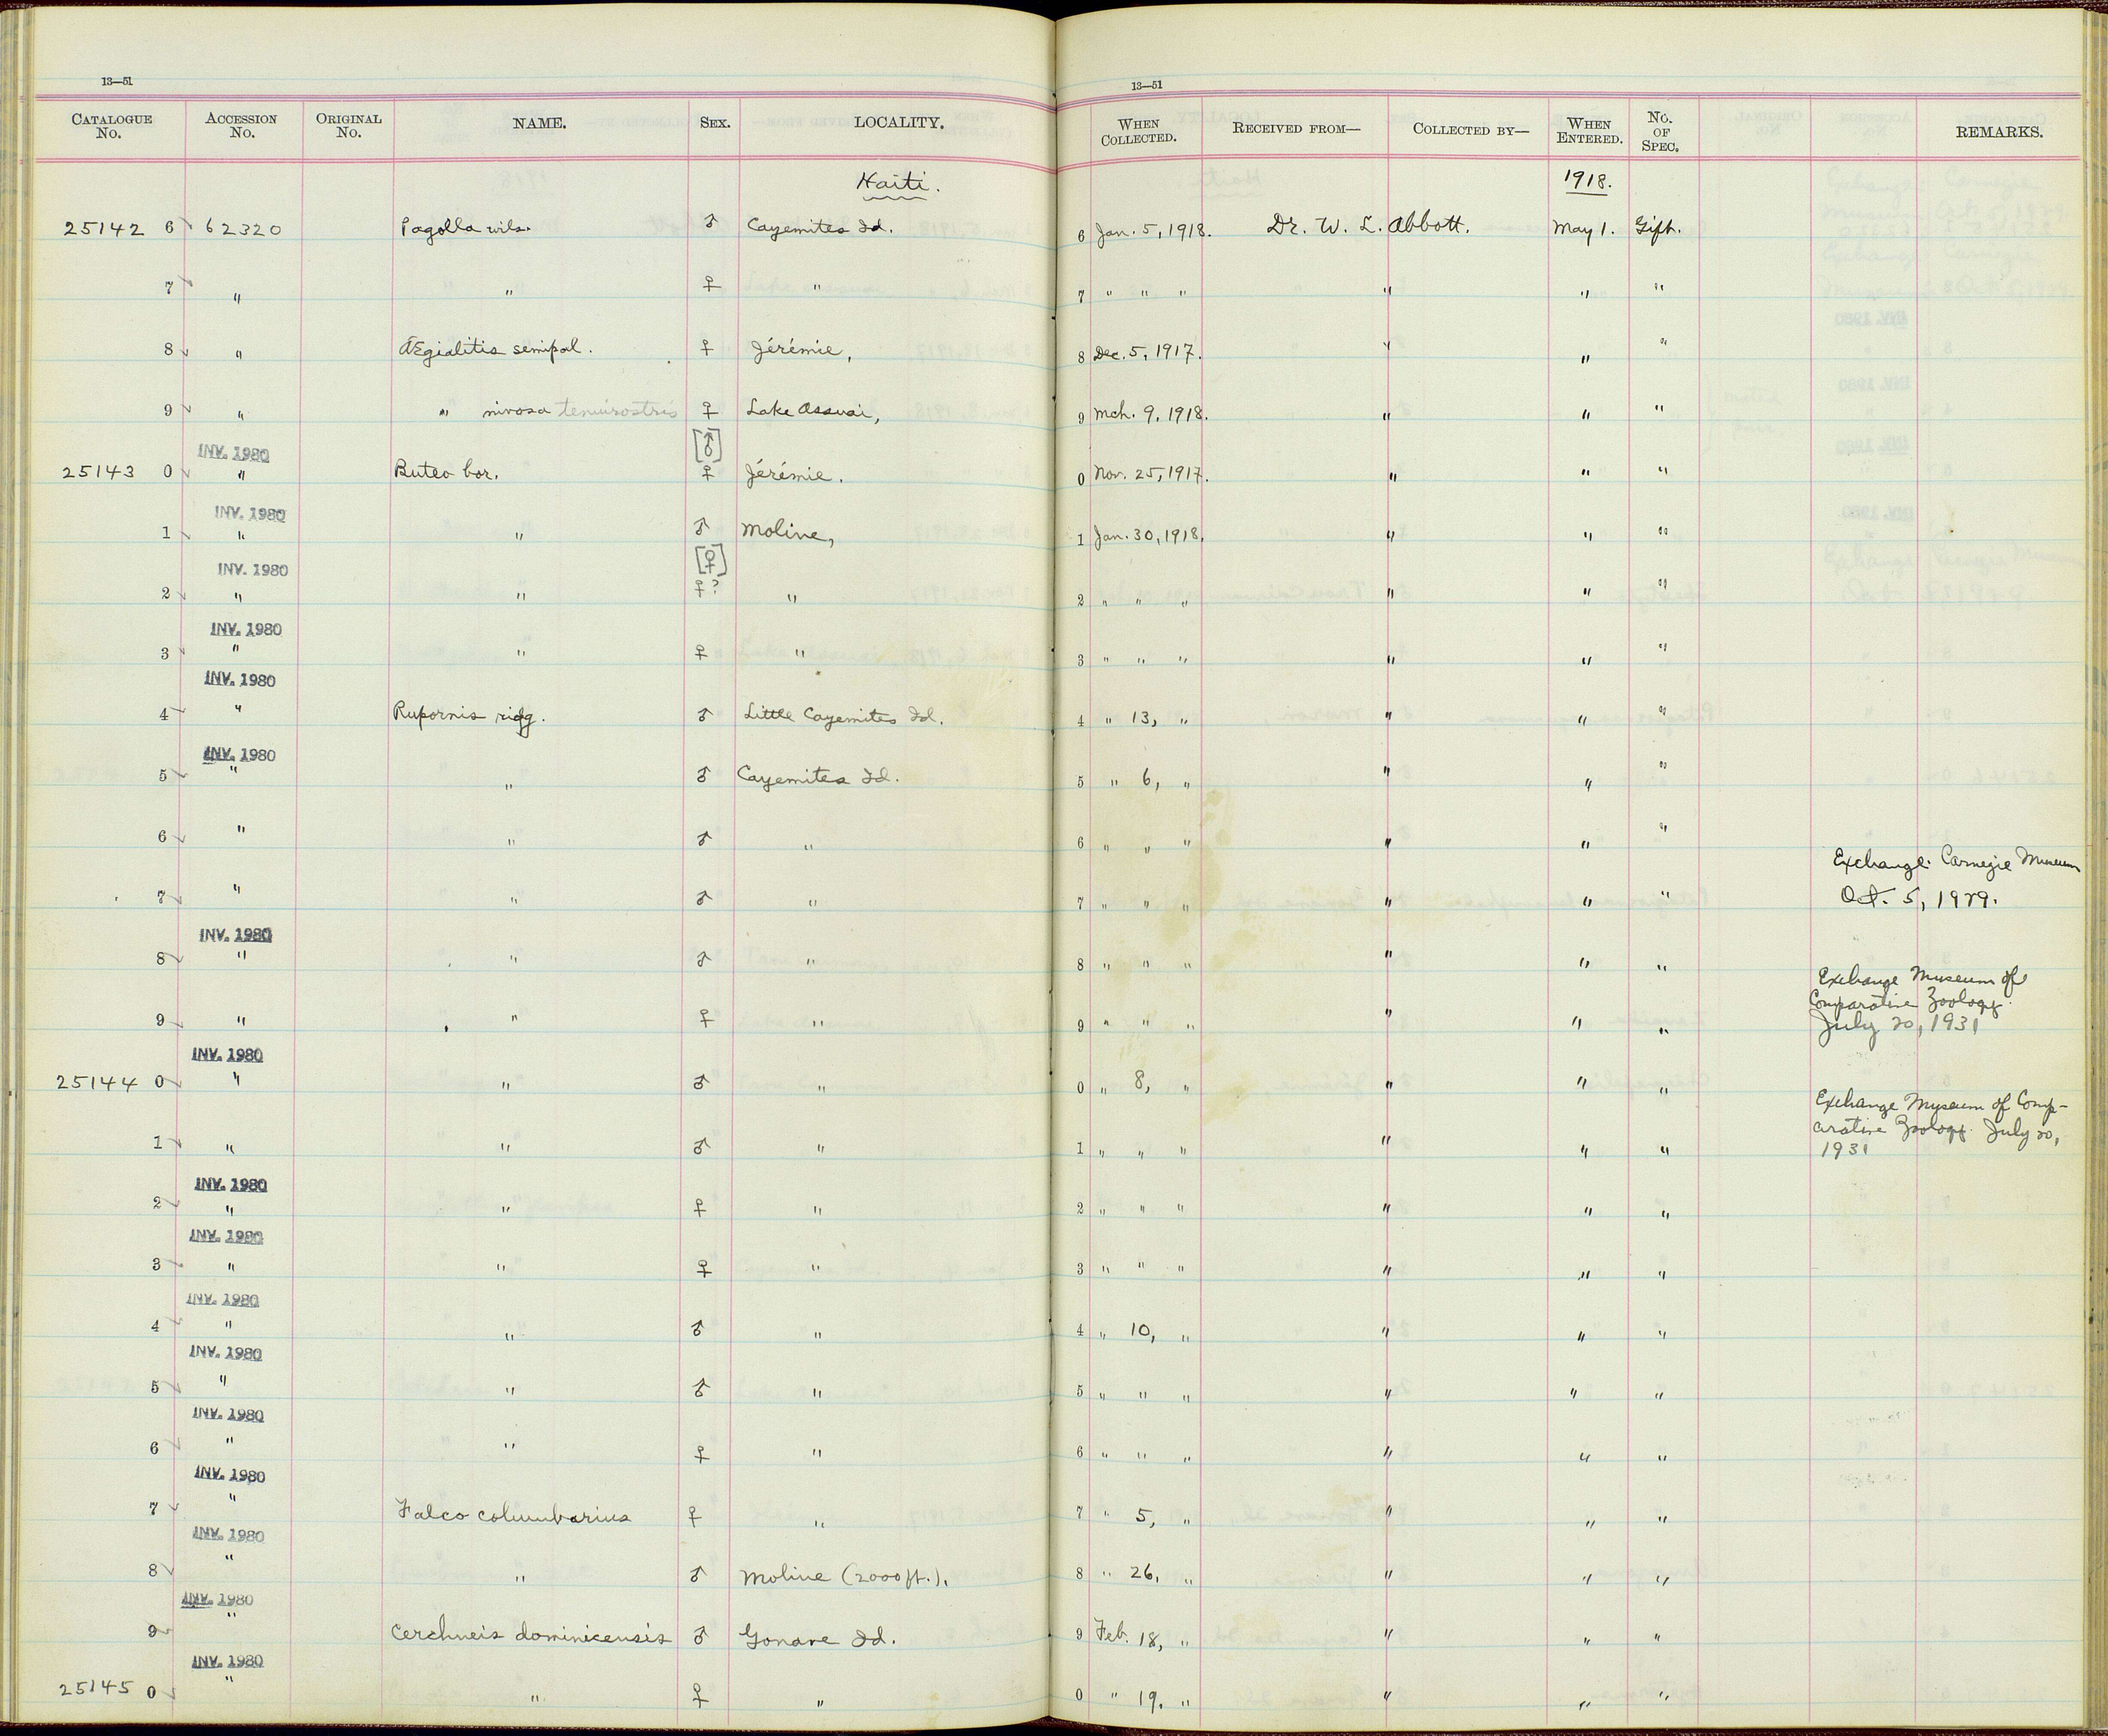 13—51
13—51
CATALOGUE No. ACCESSION No. ORIGINAL No. NAME. SEX. LOCALITY. WHEN COLLECTED. RECEIVED FROM— COLLECTED BY— WHEN ENTERED. No. OF SPEC. REMARKS.
Haiti. 1918.
25142 6 62320 Pagolla wils. ♂ Cayemites Id. 6 Jan. 5, 1918. Dr. W. L. Abbott. May 1. Gift.
7 " " ♀ " 7 " " " " " "
8 " Ægialitis semipal. ♀ Jérémie, 8 Dec. 5, 1917. " " "
9 " " nivosa tenuirostris ♀ Lake Assuai, 9 Mch. 9, 1918. " " "
INV. 1980 [♂]
25143 0 " Buteo bor. ♀ Jérémie. 0 Nov. 25, 1917. " " "
INV. 1980
1 " " ♂ Moline, 1 Jan. 30, 1918. " " "
INV. 1980 [♀]
2 " " ♀? " 2 " " " " " "
INV. 1980
3 " " ♀ " 3 " " " " " "
INV. 1980
4 " Rupornis ridg. ♂ Little Cayemites Id. 4 " 13, " " " "
INV. 1980
5 " " ♂ Cayemites Id. 5 " 6, " " " "
6 " " ♂ " 6 " " " " " "
Exchange Carnegie Museum
7 " " ♂ " 7 " " " " " " Oct. 5, 1929.
INV. 1980
8 " " ♂ " 8 " " " " " "
Exchange Museum of
Comparative Zoology.
9 " " ♀ " 9 " " " " " " July 20, 1931
INV. 1980
25144 0 " " ♂ " 0 " 8, " " " "
Exchange Museum of Comp-
arative Zoology. July 20,
1 " " ♂ " 1 " " " " " " 1931
INV. 1980
2 " " ♀ " 2 " " " " " "
INV. 1980
3 " " ♀ " 3 " " " " " "
INV. 1980
4 " " ♂ " 4 " 10, " " " "
INV. 1980
5 " " ♂ " 5 " " " " " "
INV. 1980
6 " " ♀ " 6 " " " " " "
INV. 1980
7 " Falco columbarius ♀ " 7 " 5, " " " "
INV. 1980
8 " " ♂ Moline (2000 ft.), 8 " 26, " " " "
INV. 1980
9 " Cerchneis dominicensis ♂ Gonave Id. 9 Feb. 18, " " " "
INV. 1980
25145 0 " " ♀ " 0 " 19, " " " "